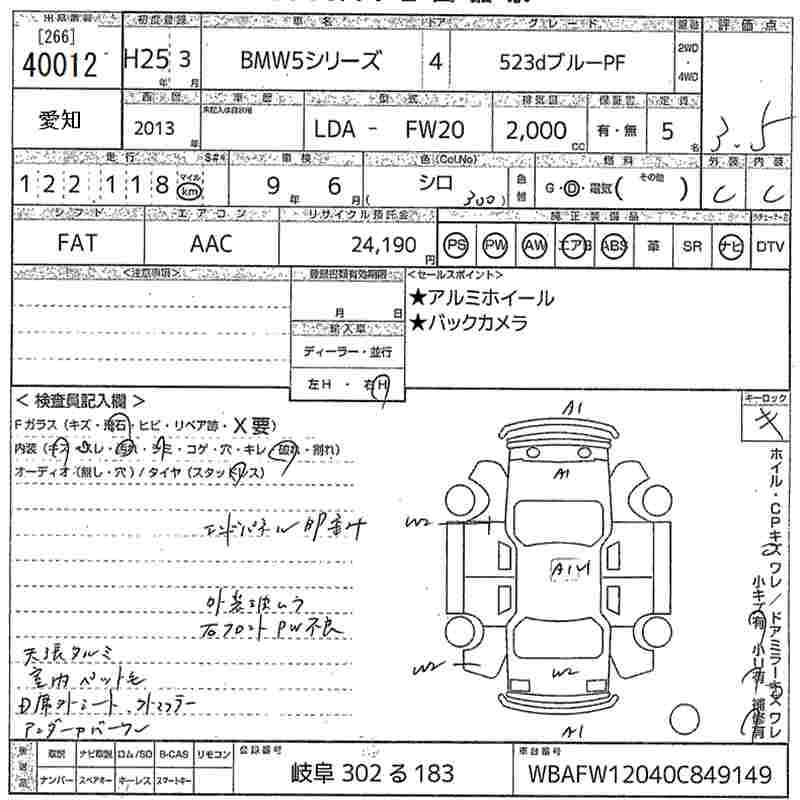 出品番号 初度登録 車名 ドア グレード 駆動 評価点
[266]
40012 H25年 3月 BMW5シリーズ 4 523dブルーPF 2WD・4WD 3.5
愛知 西暦 車歴 型式 排気量 保証書 定員
2013年 未記入は自家用 LDA - FW20 2,000cc 有・無 5名 外装 内装
走行 車検 色(Col.No) 燃料
122118 マイル km 9年 6月 シロ (300) 色替 G・D・電気( その他 ) C C
シフト エアコン リサイクル預託金 純正装備品
FAT AAC 24,190円 PS PW AW エアB ABS 革 SR ナビ DTV
<注意事項> 登録書類有効期限 <セールスポイント>
月 日 ★アルミホイール
輸入車 ★バックカメラ
ディーラー・並行
左H ・ 右H
< 検査員記入欄 > キーロック
Fガラス (キズ・飛石・ヒビ・リペア跡・X要) キ
内装 (キズ・スレ・汚れ・シミ・コゲ・穴・キレ・割れ)
オーディオ (無し・穴) / タイヤ (スタッドレス)
エンドパネル
右フロント PW不良
天張タルミ
室内ペット毛
アンダーカバーワレ
A1
A1
W2
A1
W2
W2
A1
ホイル・CPキズ ワレ / ドアミラーキズ ワレ
小キズ有 小凹有 補修有
取説 ナビ取説 ロム/SD B-CAS リモコン 登録番号 車台番号
ナンバー スペアキー キーレス スマートキー 岐阜 302 る 183 WBAFW12040C849149